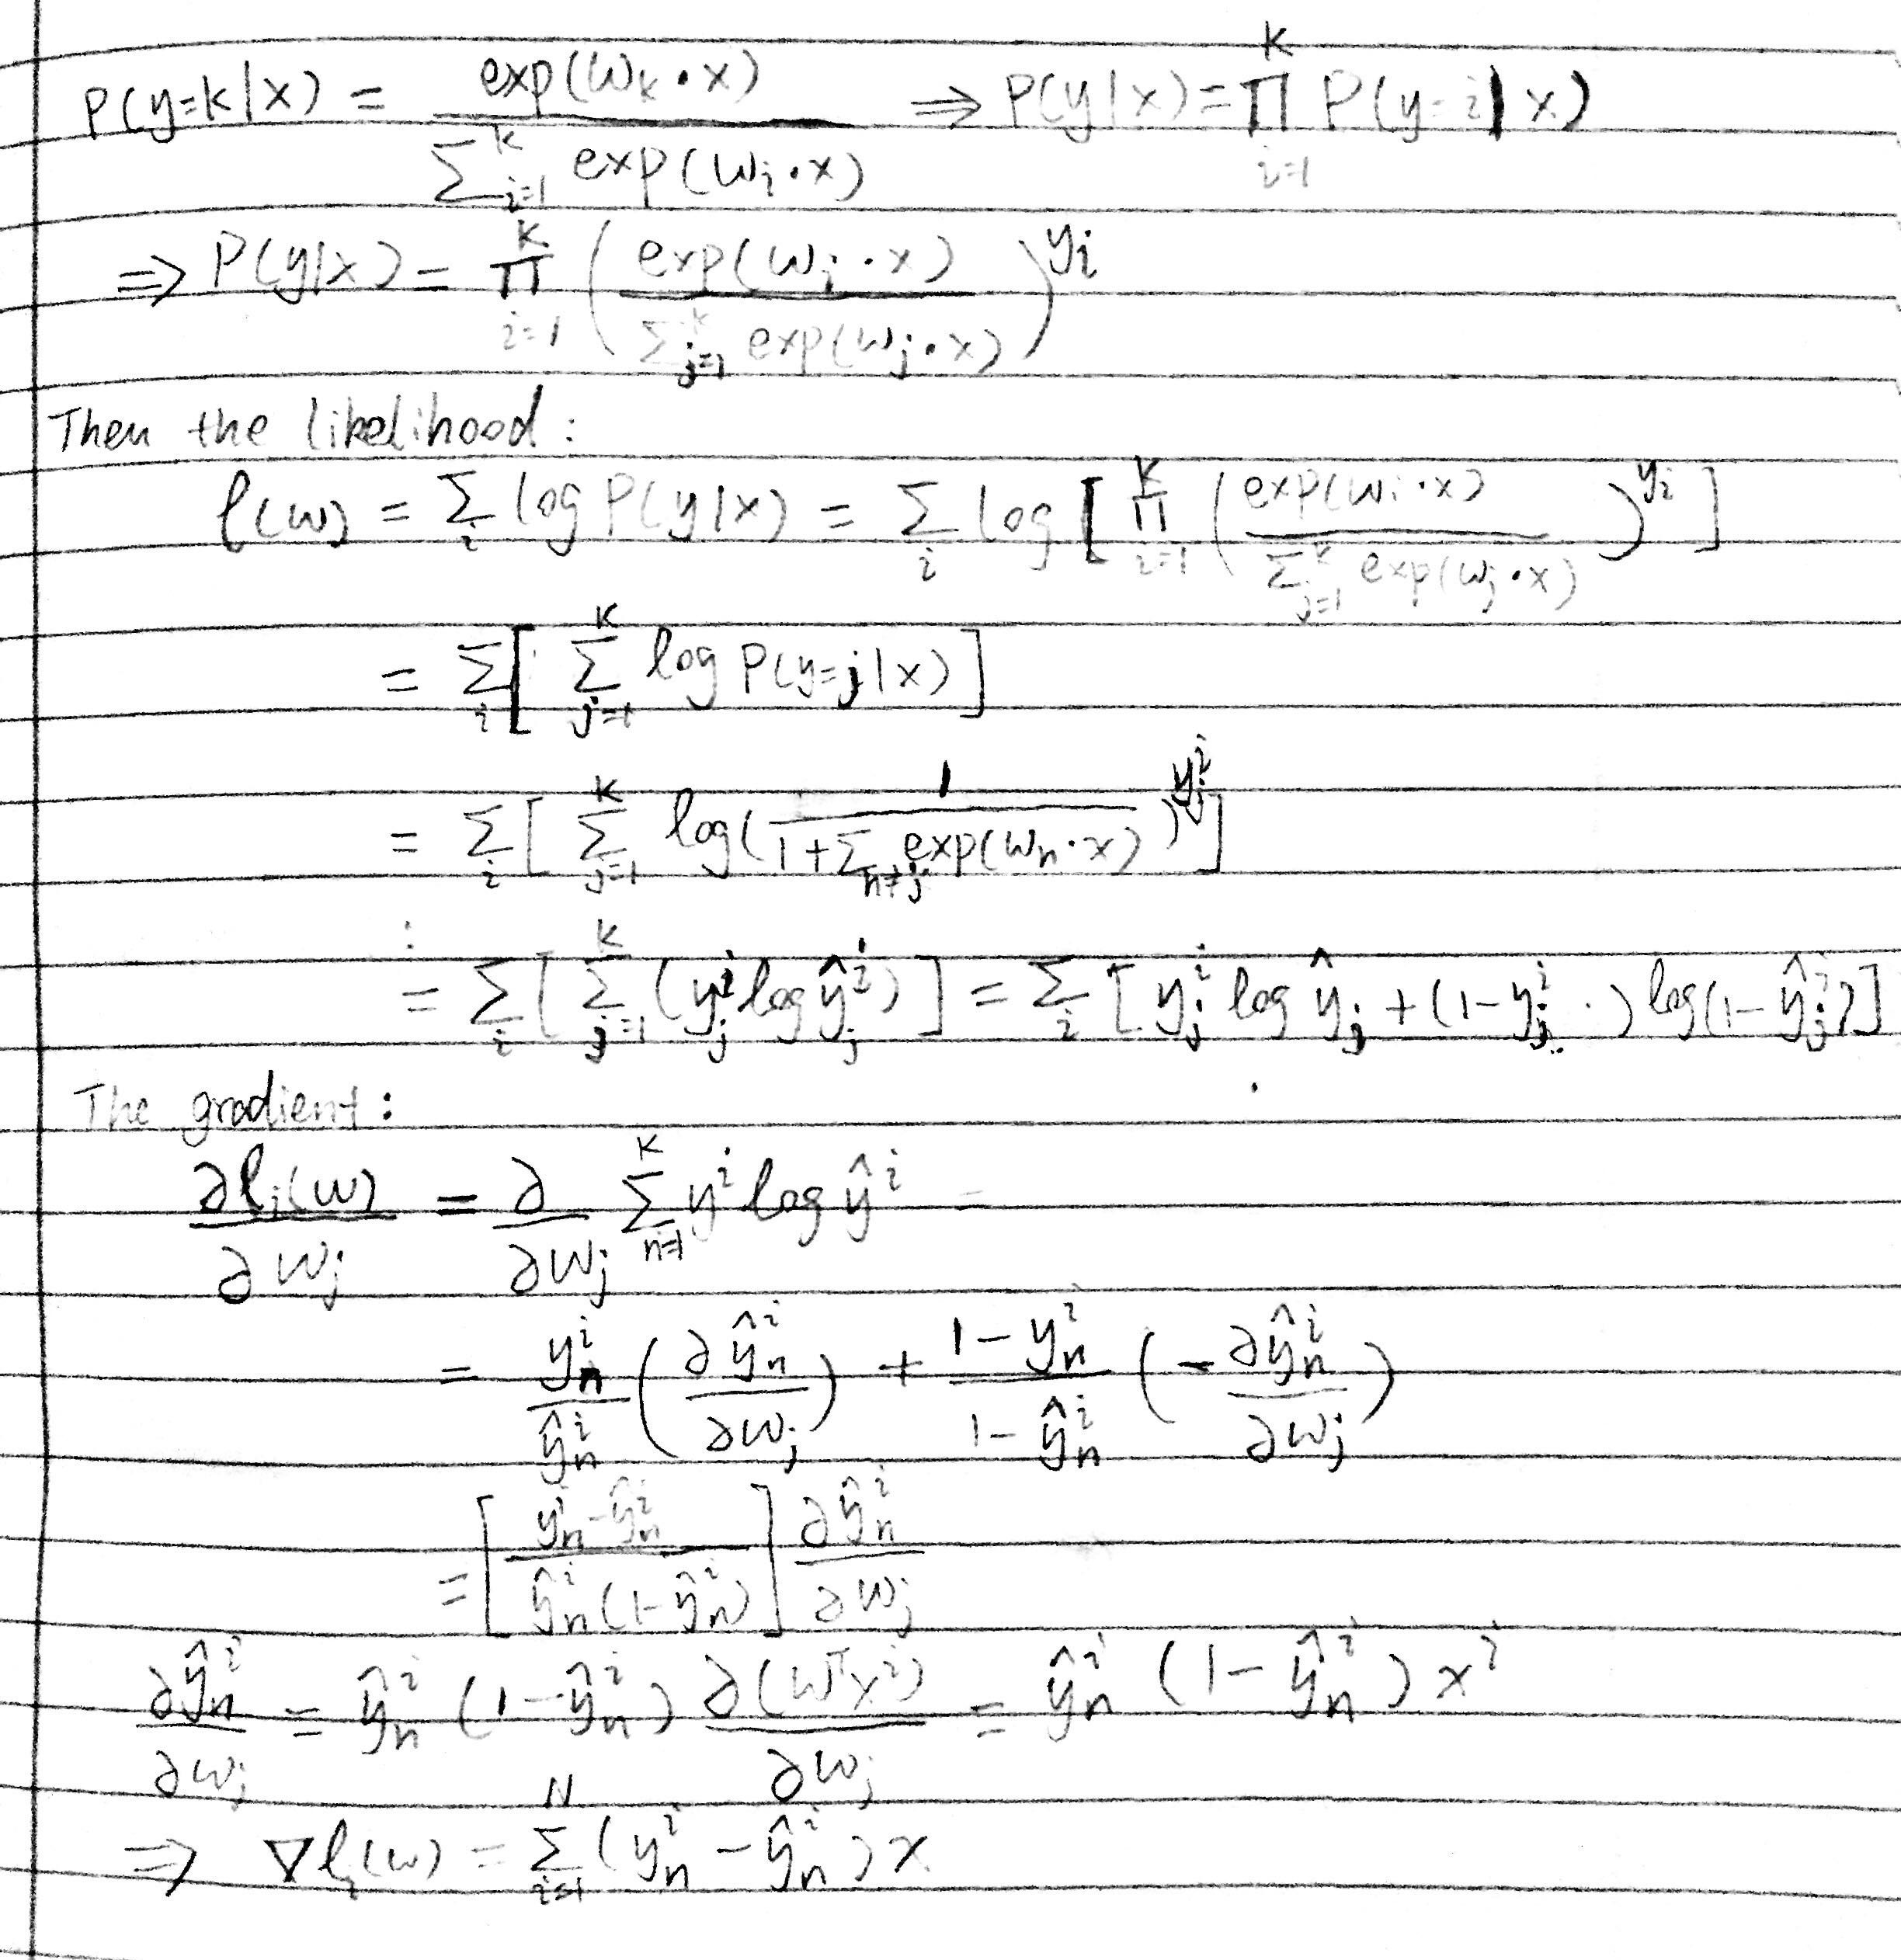 P(y=k|x) = exp(w_k·x) / Σ_{i=1}^{k} exp(w_i·x) ⇒ P(y|x) = Π_{i=1}^{K} P(y=i|x)
⇒ P(y|x) = Π_{i=1}^{K} ( exp(w_i·x) / Σ_{j=1}^{k} exp(w_j·x) )^{y_i}
Then the likelihood:
ℓ(w) = Σ_i log P(y|x) = Σ_i log [ Π_{i=1}^{K} ( exp(w_i·x) / Σ_{j=1}^{k} exp(w_j·x) )^{y_i} ]
= Σ_i [ Σ_{j=1}^{K} log P(y=j|x) ]
= Σ_i [ Σ_{j=1}^{K} log( 1 / 1+Σ_{n≠j} exp(w_n·x) )^{y_j^i} ]
= Σ_i [ Σ_{j=1}^{K} (y_j^i log ŷ_j^i) ] = Σ_i [ y_j^i log ŷ_j + (1-y_j^i) log(1-ŷ_j^i) ]
The gradient:
∂ℓ_i(w) / ∂w_j = ∂/∂w_j Σ_{n=1}^{K} y^i log ŷ^i
= y_n^i / ŷ_n^i ( ∂ŷ_n^i / ∂w_j ) + 1-y_n^i / 1-ŷ_n^i ( - ∂ŷ_n^i / ∂w_j )
= [ y_n^i - ŷ_n^i / ŷ_n^i (1-ŷ_n^i) ] ∂ŷ_n^i / ∂w_j
∂ŷ_n^i / ∂w_j = ŷ_n^i (1-ŷ_n^i) ∂(w^T x^i) / ∂w_j = ŷ_n^i (1-ŷ_n^i) x^i
⇒ ∇ℓ_i(w) = Σ_{i=1}^{N} (y_n^i - ŷ_n^i) x